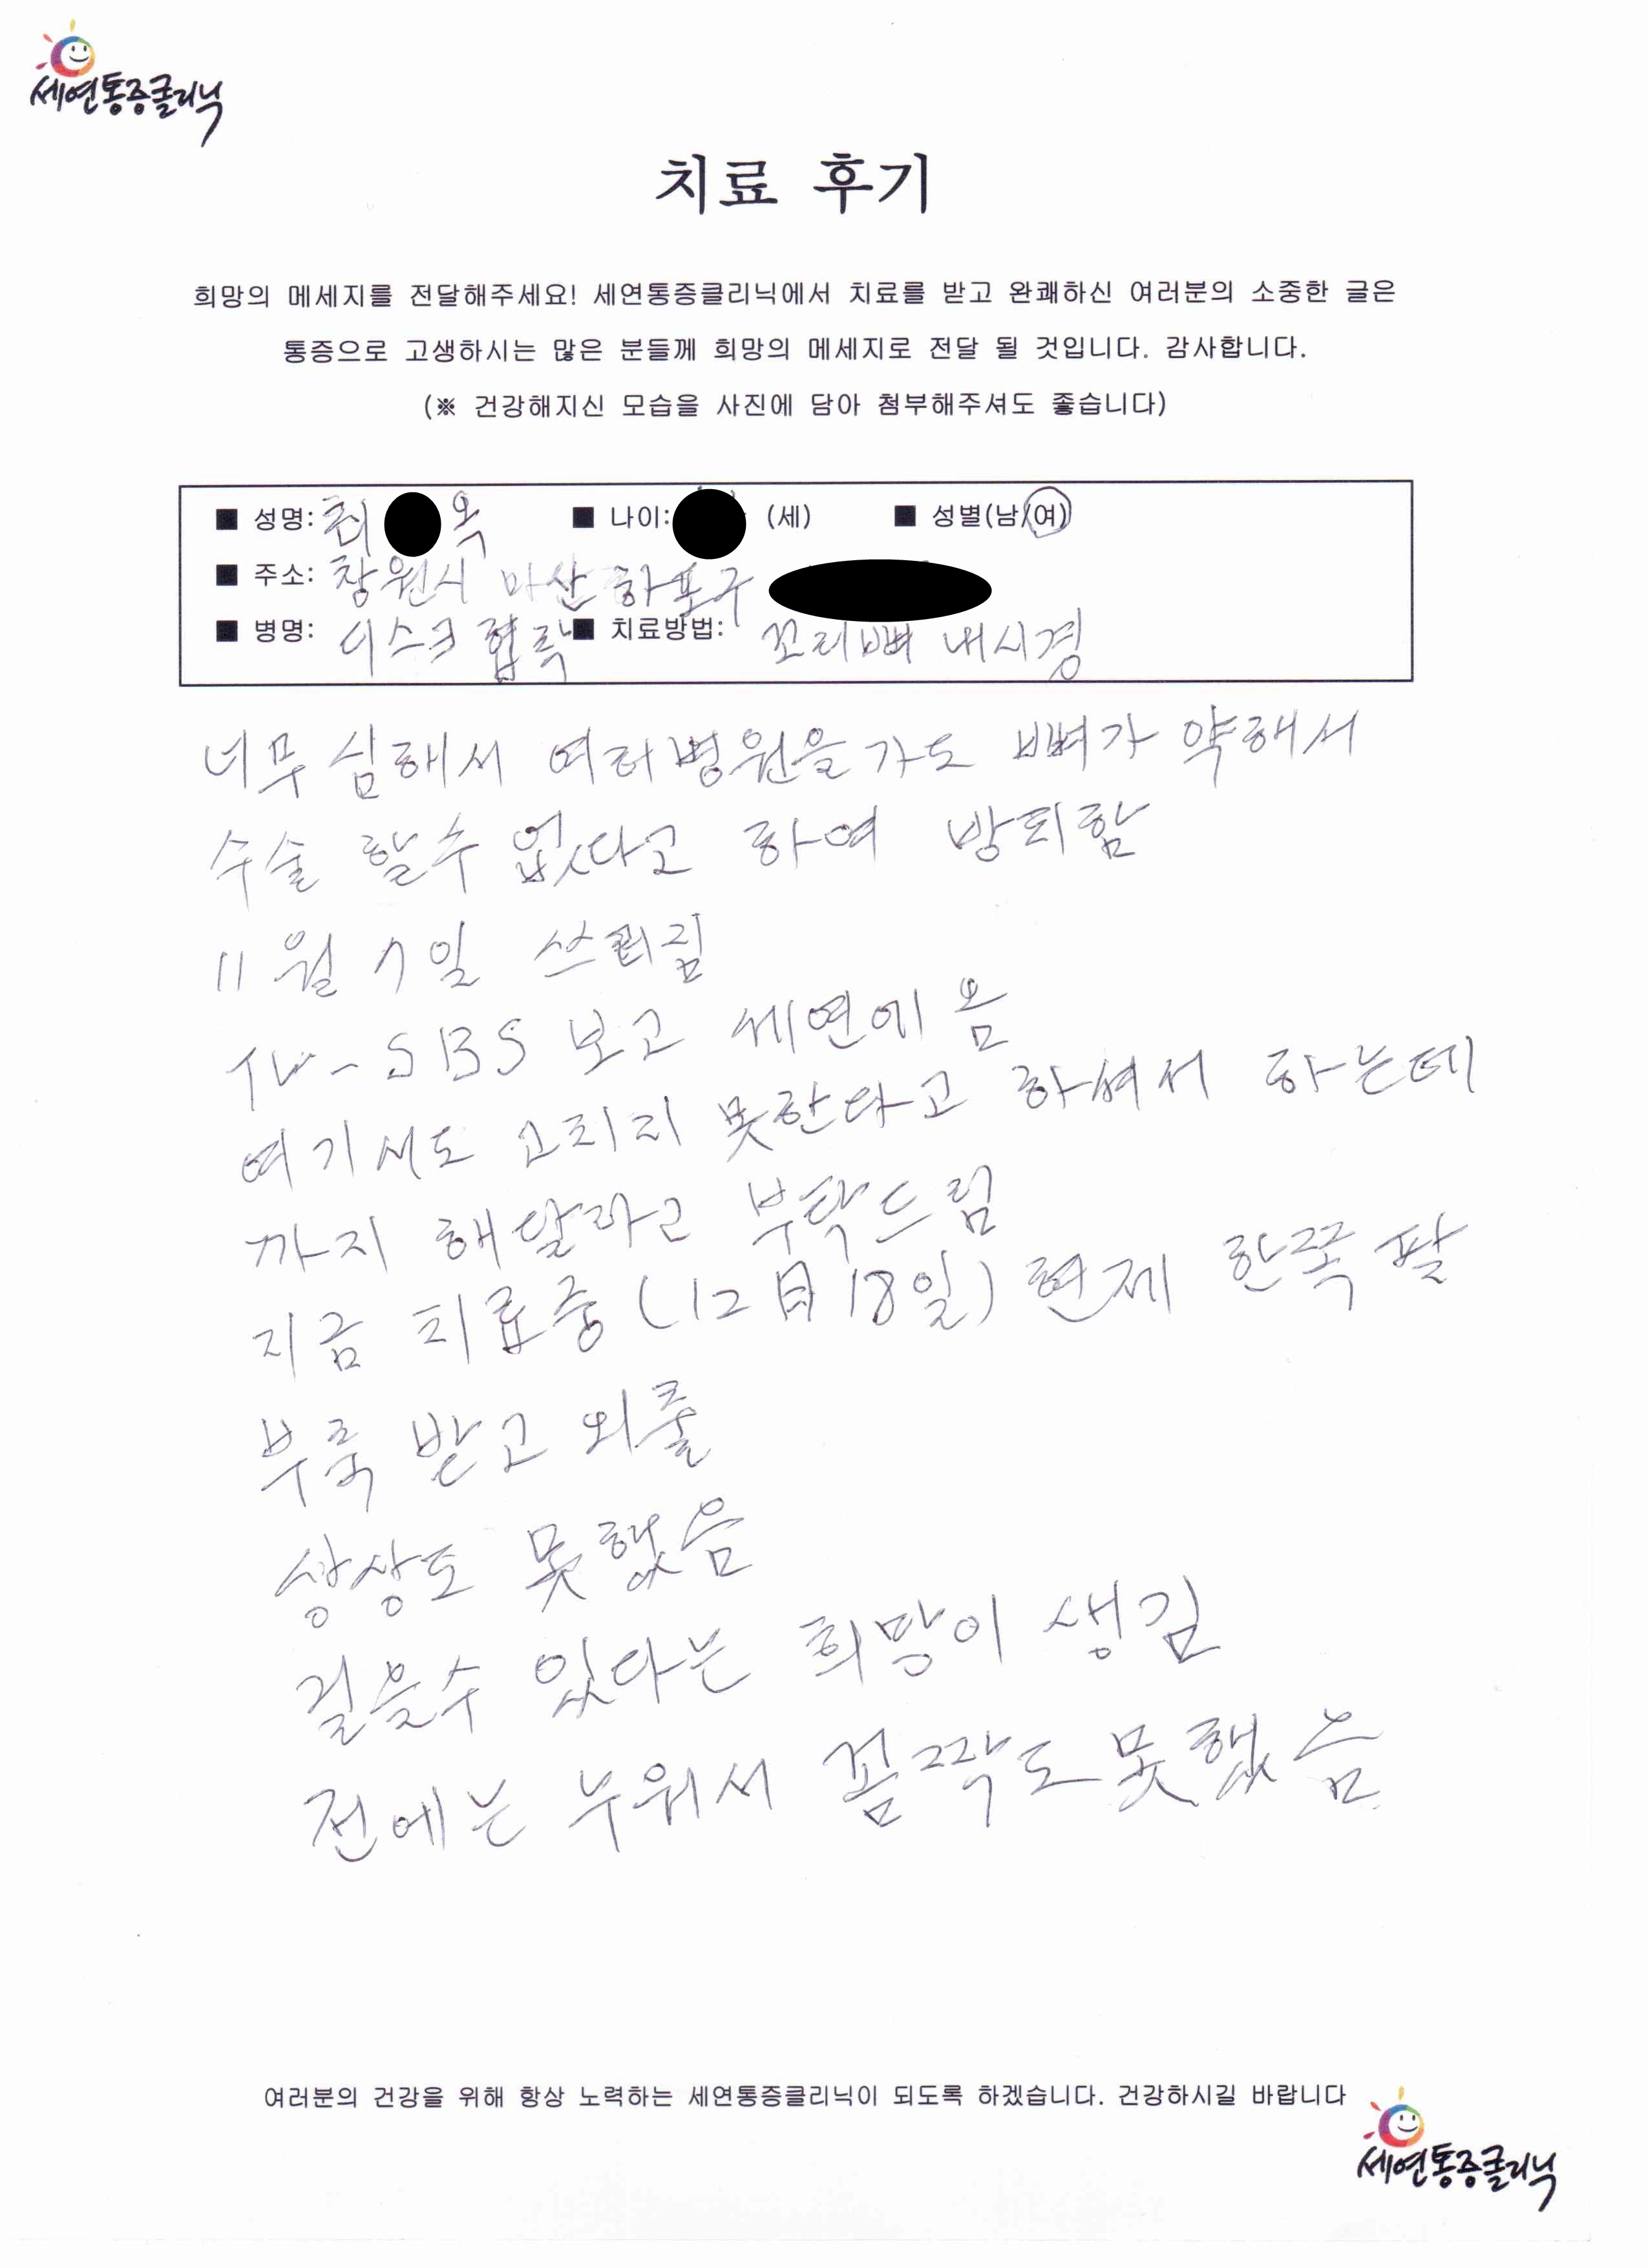 세연통증클리닉
치료 후기
희망의 메세지를 전달해주세요! 세연통증클리닉에서 치료를 받고 완쾌하신 여러분의 소중한 글은
통증으로 고생하시는 많은 분들께 희망의 메세지로 전달 될 것입니다. 감사합니다.
(※ 건강해지신 모습을 사진에 담아 첨부해주셔도 좋습니다)
■ 성명: 최 옥 ■ 나이: (세) ■ 성별(남/여)
■ 주소: 창원시 마산 하포구
■ 병명: 디스크 협착 ■ 치료방법: 꼬리뼈 내시경
너무 심해서 여러병원을 가도 뼈가 약해서
수술 할수 없다고 하여 방치함
11월 7일 쓰러짐
TV-SBS 보고 세연에 옴
여기서도 못한다고 하셔서 하는데
까지 해달라고 부탁드림
지금 치료중(12月18일) 현제 한쪽 팔
부축 받고 외출
상상도 못했음
걸을수 있다는 희망이 생김
전에는 누워서 꼼짝도 못했음
여러분의 건강을 위해 항상 노력하는 세연통증클리닉이 되도록 하겠습니다. 건강하시길 바랍니다
세연통증클리닉